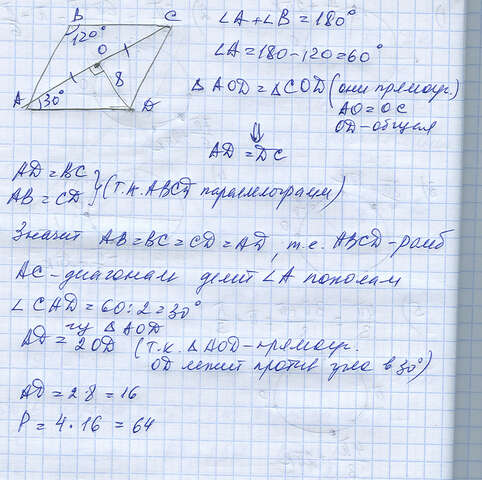 B
C
120°
O
8
A
30°
D
∠A+∠B=180°
∠A=180-120=60°
△AOD=△COD (они прямоуг.)
AO=OC
OD-общая
⇓
AD=DC
AD=BC
AB=CD } (т.к. ABCD параллелограмм)
Значит AB=BC=CD=AD, т.е. ABCD-ромб
AC-диагональ делит ∠A пополам
∠CAD=60:2=30°
из △AOD
AD=2OD (т.к. △AOD-прямоуг.
OD лежит против угла в 30°)
AD=2·8=16
P=4·16=64